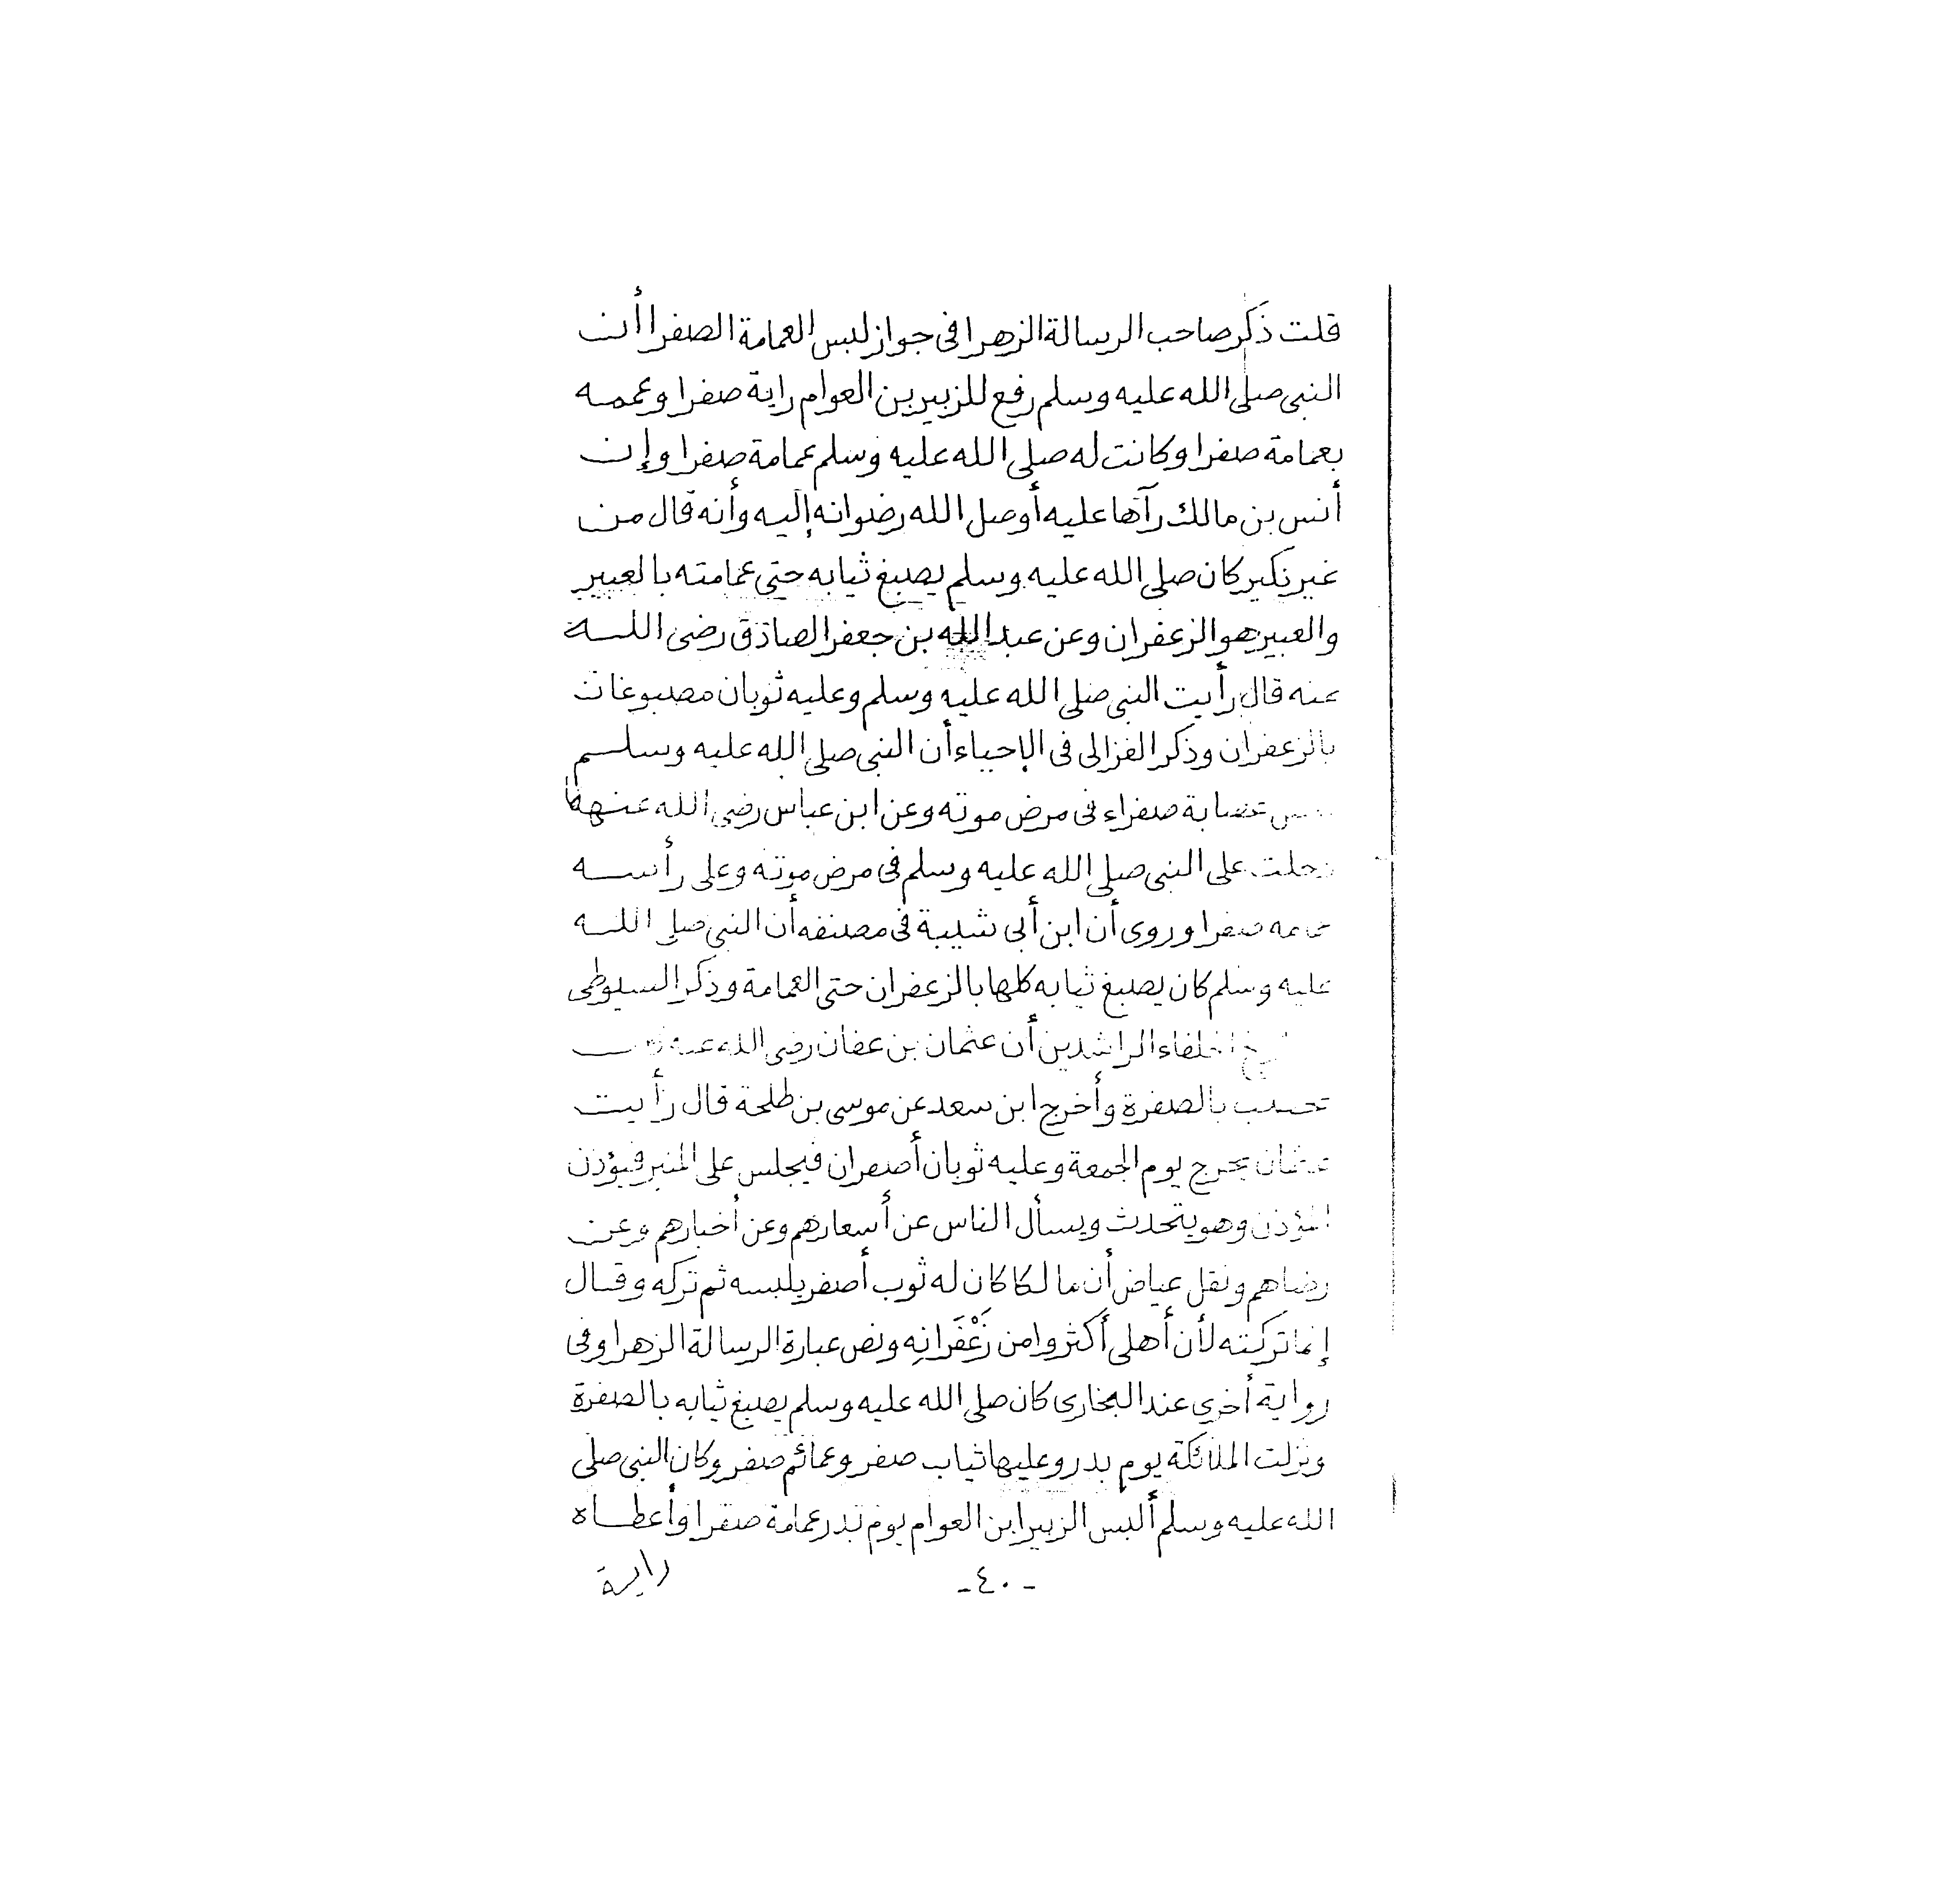 قلت ذَكر صاحب الرسالة الزهرا فى جواز لبس العمامة الصفرا أن
النبى صلى الله عليه وسلم رفع للزبير بن العوام راية صفرا وعممه
بعمامة صفرا وكانت له صلى الله عليه وسلم عمامة صفرا وإن
أنس بن مالك رآها عليه أوصل الله رضوانه إليه وأنه قال من
غير نكير كان صلى الله عليه وسلم يصبغ ثيابه حتى عمامته بالعبير
والعبير هو الزعفران وعن عبد الله بن جعفر الصادق رضى الله
عنه قال رأيت النبى صلى الله عليه وسلم وعليه ثوبان مصبوغان
بالزعفران وذكر الغزالى فى الإحياء أن النبى صلى الله عليه وسلم
عصابة صفراء فى مرض موته وعن ابن عباس رضى الله عنهما
دخلت على النبى صلى الله عليه وسلم فى مرض موته وعلى رأسه
صفرا وروى أن ابن أبى شيبة فى مصنفه أن النبى صلى الله
عليه وسلم كان يصبغ ثيابه كلها بالزعفران حتى العمامة وذكر السيوطى
الخلفاء الراشدين أن عثمان بن عفان رضى الله عنه
بالصفرة وأخرج ابن سعد عن موسى بن طلحة قال رأيت
عثمان يخرج يوم الجمعة وعليه ثوبان أصفران فيجلس على المنبر فيؤذن
المؤذن وهو يتحدث ويسأل الناس عن أسعارهم وعن أخبارهم وعن
رضاهم ونقل عياض أن مالكا كان له ثوب أصفر يلبسه ثم تركه وقال
إنما تركته لأن أهلى أكثروا من زَعْفَرانِه ونص عبارة الرسالة الزهرا وفى
رواية أخرى عند البخارى كان صلى الله عليه وسلم يصبغ ثيابه بالصفرة
ونزلت الملائكة يوم بدر وعليها ثياب صفر وعمائم صفر وكان النبى صلى
الله عليه وسلم ألبس الزبير ابن العوام يوم بدر عمامة صفرا وأعطاه
- ٤٠ -
راية